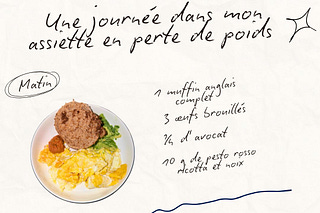 Une journée dans mon
assiette en perte de poids
Matin
1 muffin anglais
complet
3 œufs brouillés
¼ d'avocat
10 g de pesto rosso
ricotta et noix